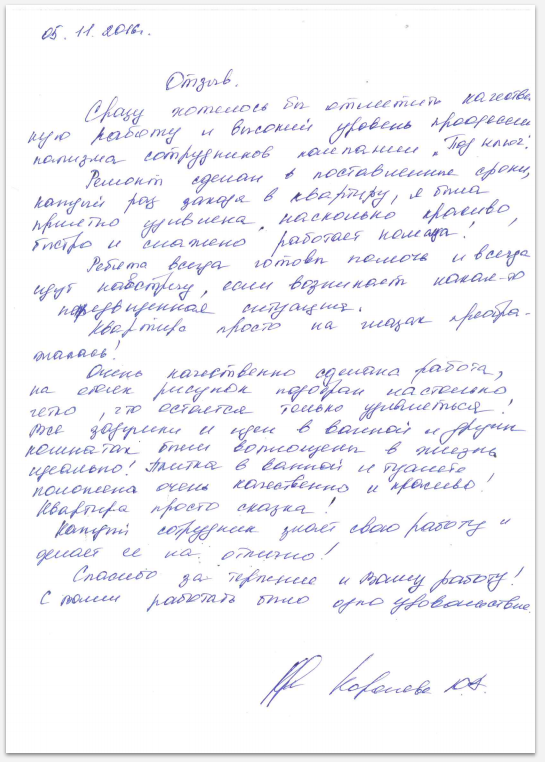 05.11.2016г.
Отзыв.
Сразу хотелось бы отметить качествен
ную работу и высокий уровень профессио
нализма сотрудников компании „Под ключ".
Ремонт сделан в поставленные сроки,
каждый раз заходя в квартиру, я была
приятно удивлена, насколько красиво,
быстро и слажено работает команда!
Ребята всегда готовы помочь и всегда
идут навстречу, если возникает какая-то
ситуация.
Квартира просто на глазах преобра-
жалась!
Очень качественно сделана работа,
на стенах рисунок подобран настолько
четко, что остается только удивляться!
Все задумки и идеи в ванной и других
комнатах были воплощены в жизнь
идеально! Плитка в ванной и туалете
положена очень качественно и красиво!
Квартира просто сказка!
Каждый сотрудник знает свою работу и
делает ее на отлично!
Спасибо за терпение и Вашу работу!
С вами работать было одно удовольствие.
Ю.А.